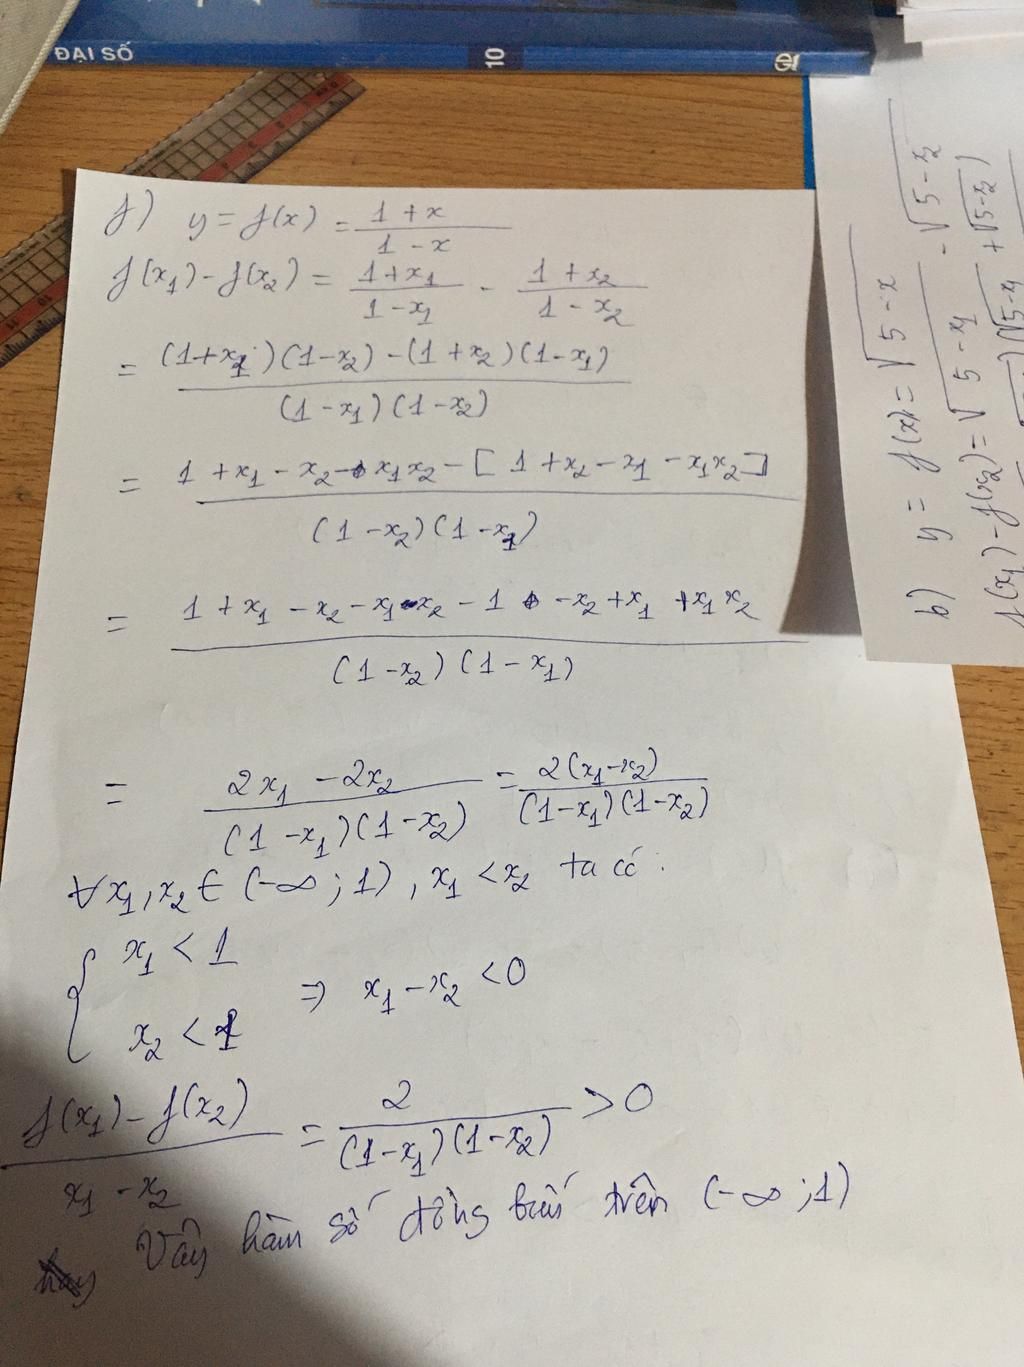 ĐẠI SỐ
10
f) y = f(x) = \frac{1+x}{1-x}
f(x₁) - f(x₂) = \frac{1+x₁}{1-x₁} - \frac{1+x₂}{1-x₂}
= \frac{(1+x₁)(1-x₂) - (1+x₂)(1-x₁)}{(1-x₁)(1-x₂)}
= \frac{1+x₁-x₂-x₁x₂-[1+x₂-x₁-x₁x₂]}{(1-x₂)(1-x₁)}
= \frac{1+x₁-x₂-x₁x₂-1-x₂+x₁+x₁x₂}{(1-x₂)(1-x₁)}
= \frac{2x₁-2x₂}{(1-x₁)(1-x₂)} = \frac{2(x₁-x₂)}{(1-x₁)(1-x₂)}
∀x₁,x₂ ∈ (-∞;1), x₁ < x₂ ta có:
{ x₁ < 1
x₂ < 1 ⇒ x₁ - x₂ < 0
\frac{f(x₁)-f(x₂)}{x₁-x₂} = \frac{2}{(1-x₁)(1-x₂)} > 0
Vậy hàm số đồng biến trên (-∞;1)
b) y = f(x) = √(5-x)
f(x₁) - f(x₂) = √(5-x₁) - √(5-x₂)